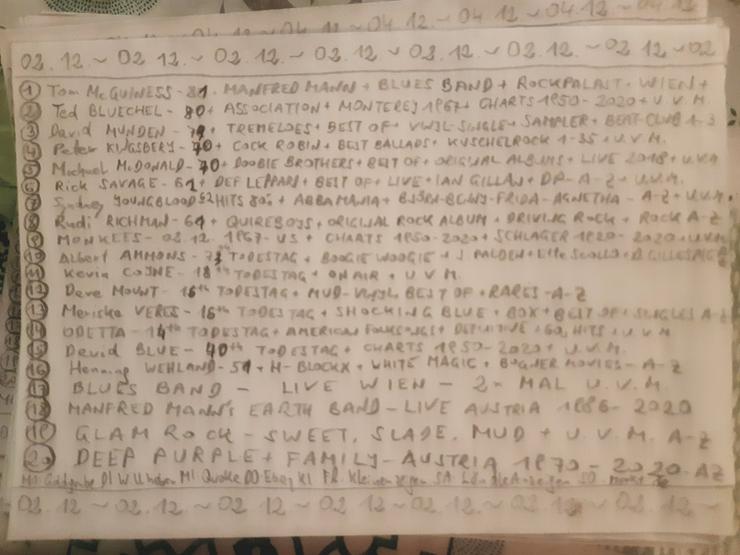 04.12 ~ 04.12 ~ 04.12 ~ 04.12
02.12. ~ 02.12. ~ 02.12. ~ 02.12. ~ 02.12. ~ 02.12. ~ 02
① Tom McGUINESS - 81. MANFRED MANN + BLUES BAND + ROCKPALAST. WIEN +
② Ted BLUECHEL - 80 + ASSOCIATION + MONTEREJ 1967 + CHARTS 1950 - 2020 + U.V.M.
③ David MUNDEN - 79 + TREMELOES + BEST OF + VINYL-SINGLE + SAMPLER + BEAT-CLUB 1-3
④ Peter KINGSBERY - 70 + COCK ROBIN + BEST BALLADS + KUSCHELROCK 1-35 + U.V.M.
⑤ Michael McDONALD - 70 + DOOBIE BROTHERS + BEST OF + ORIGINAL ALBUMS + LIVE 2018 + U.V.M
⑥ Rick SAVAGE - 61 + DEF LEPPARD + BEST OF + LIVE + IAN GILLAN + DP - A-Z + U.V.M.
⑦ Sydney YOUNGBLOOD 62 HITS 80s + ABBA MANIA + BJÖRN-BENNY-FRIDA-AGNETHA - A-Z + U.V.M.
⑧ Rudi RICHMAN - 61 + QUIREBOYS + ORIGINAL ROCK ALBUM + DRIVING ROCK + ROCK A-Z
⑨ MONKEES - 02.12. 1967 - US + CHARTS 1950-2020 + SCHLAGER 1920 - 2020 + U.V.M
⑩ Albert AMMONS - 73th TODESTAG + BOOGIE WOOGIE + J. PALDEN + D. GILLESPIE
⑪ Kevin COINE - 18th TODESTAG + ON AIR + U.V.M.
⑫ Dave MOUNT - 16th TODESTAG + MUD-VINYL BEST OF + RARES - A-Z
⑬ Mariska VERES - 16th TODESTAG + SHOCKING BLUE + BOX + BEST OF + SINGLES A-Z
⑭ ODETTA - 14th TODESTAG + AMERICAN FOLKSONGS + DEFINITIVE + 60s HITS + U.V.M
⑮ David BLUE - 40th TODESTAG + CHARTS 1950-2020 + U.V.M.
⑯ Henning WEHLAND - 51 + H-BLOCKX + WHITE MAGIC + MOVIES - A-Z
⑰ BLUES BAND - LIVE WIEN - 2x MAL U.V.M.
⑱ MANFRED MANN'S EARTH BAND - LIVE AUSTRIA 1986 - 2020
⑲ GLAM ROCK - SWEET, SLADE, MUD + U.V.M. A-Z
⑳ DEEP PURPLE + FAMILY - AUSTRIA 1970 - 2020 - AZ
DI Willhaben MI Quoka DO Ebay FR. Kleinanzeigen SA Ländleanzeigen SO
02.12. ~ 02.12 ~ 02.12 ~ 02.12 ~ 02.12 ~ 02.12 ~ 02.12. ~